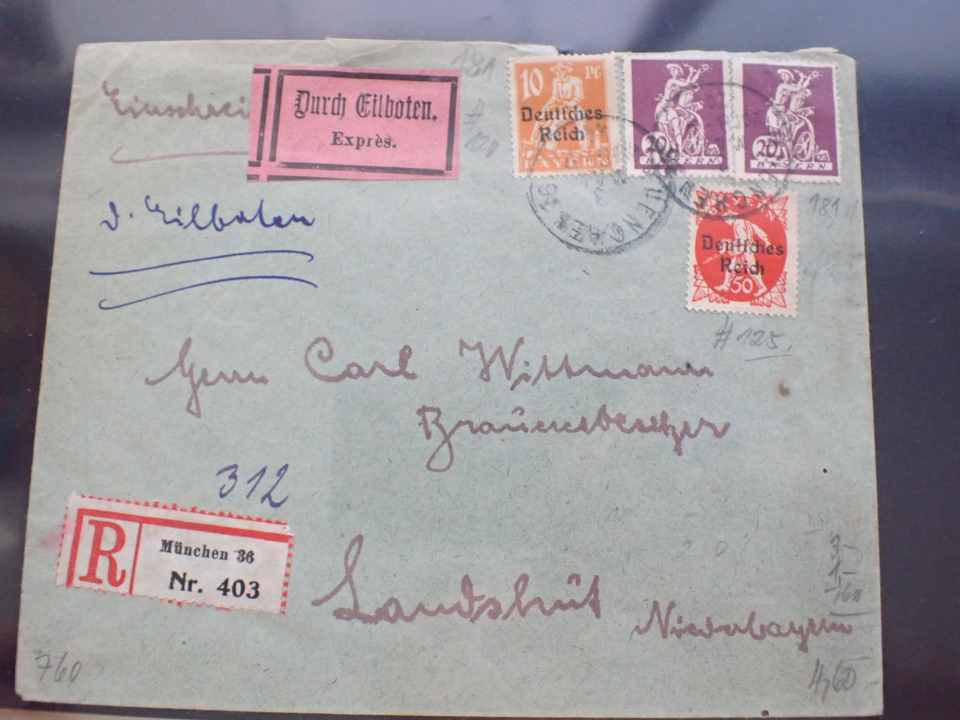 181
Einschrei
Durch Eilboten.
Exprès.
# 120
d. Eilboten
10 Pf
Deutsches
Reich
BAYERN
20
BAYERN
20
BAYERN
MÜNCHEN
181
Deutsches
Reich
50
# 125.
Herrn Carl Wittmann
Brauereibesitzer
312
R
München 36
Nr. 403
Landshut
Niederbayern
3,-
1,-
760